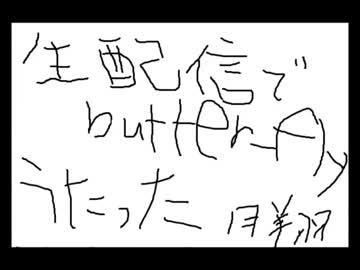 生配信で
butter-fly
うたった 月羊羽